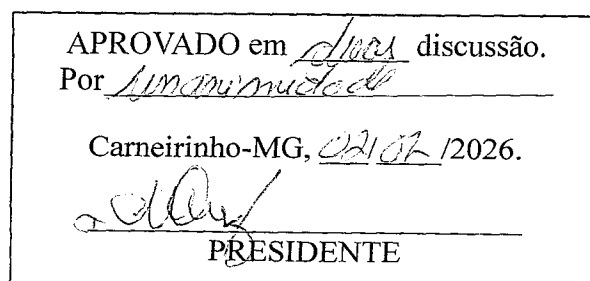 APROVADO em duas discussão.
Por unanimidade
Carneirinho-MG, 02/02/2026.
PRESIDENTE